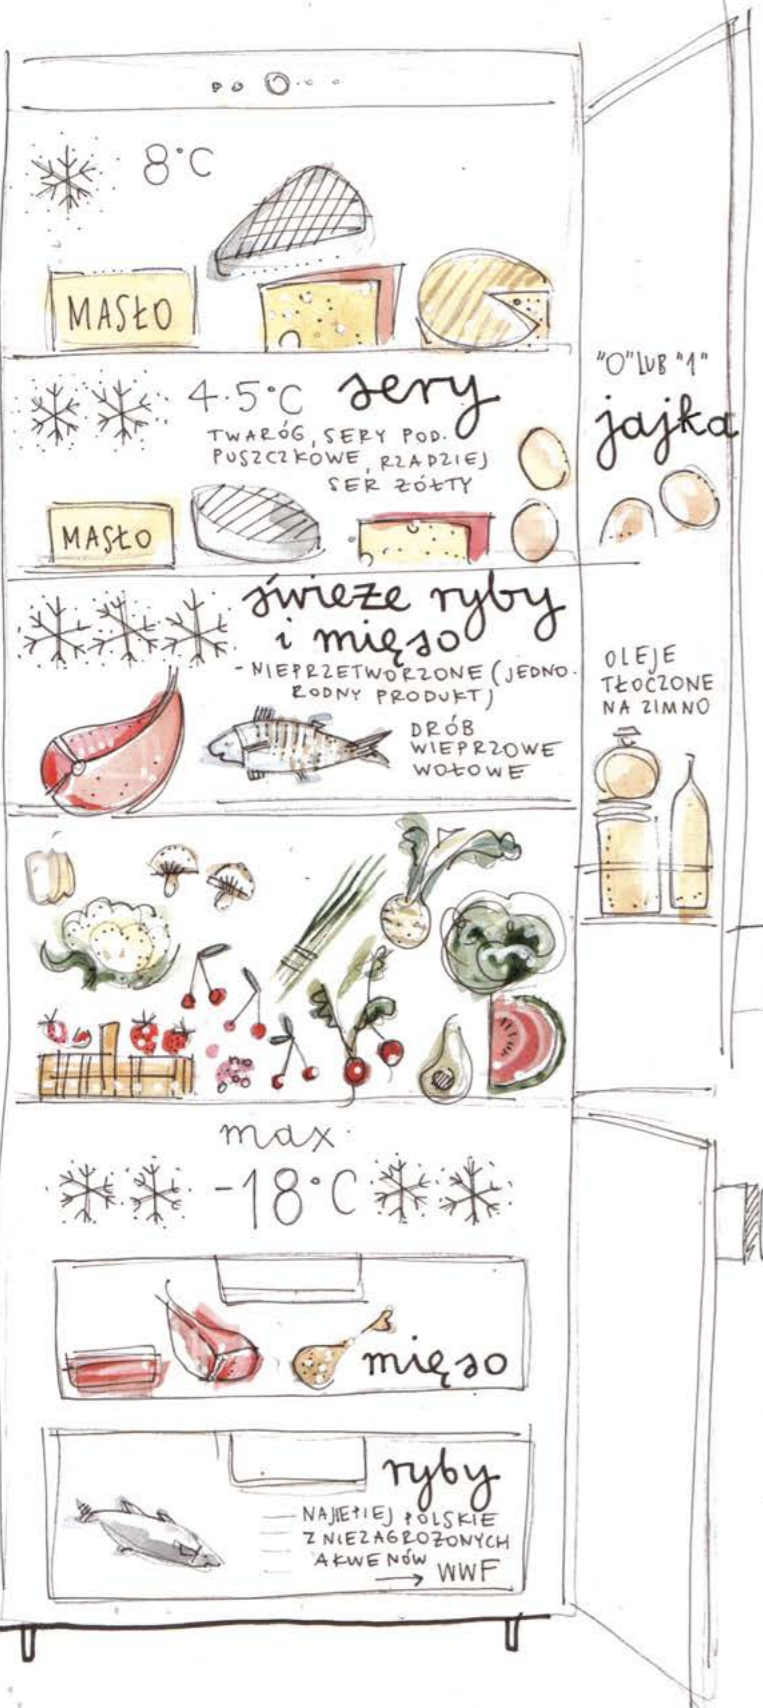 8°C
MASŁO
4-5°C sery
TWARÓG, SERY POD-
PUSZCZKOWE, RZADZIEJ
SER ŻÓŁTY
MASŁO
"0" LUB "1"
jajka
świeże ryby
i mięso
- NIEPRZETWORZONE (JEDNO-
RODNY PRODUKT)
DRÓB
WIEPRZOWE
WOŁOWE
OLEJE
TŁOCZONE
NA ZIMNO
max.
-18°C
mięso
ryby
NAJLEPIEJ POLSKIE
Z NIEZAGROŻONYCH
AKWENÓW
→ WWF